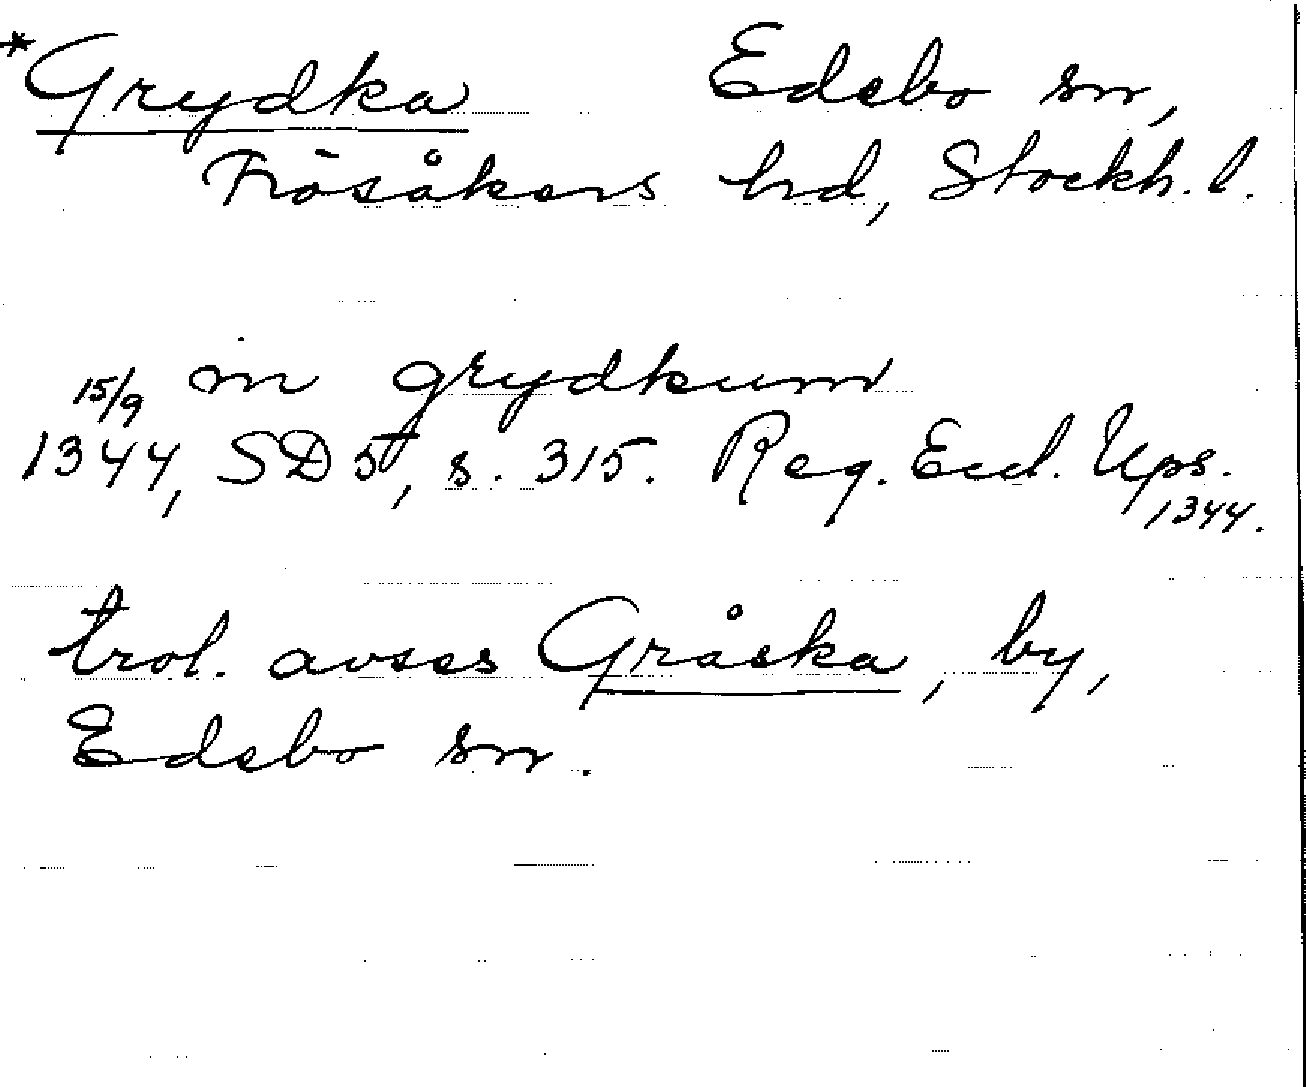 *Grydka Edebo sn,
Frösåkers hrd, Stockh. l.
15/9 in grydkum
1344, SD 5, s. 315. Reg. Eccl. Ups.
1344.
trol. avses Gråska, by,
Edebo sn.